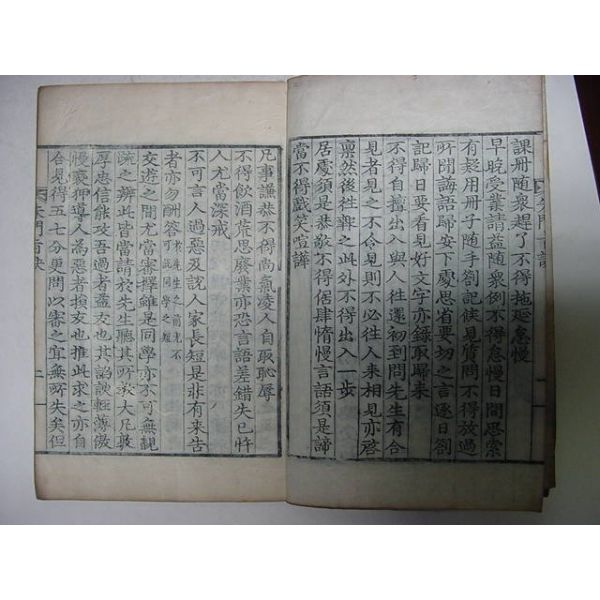 課冊隨衆趕了不得拖延怠慢
早晚受業請益隨衆例不得怠慢日間思索
有疑用冊子隨手劄記候見質問不得放過
所聞誨語歸安下處思省要切之言逐日劄
記歸日要看見好文字亦錄取歸來
不得自擅出入與人往還初到問先生有合
見者見之不令見則不必往人來相見亦啓
稟然後往報之此外不得出入一步
居處須是恭敬不得倨肆惰慢言語須是諦
當不得戲笑喧譁
凡事謙恭不得尚氣凌人自取恥辱
不得飮酒荒思廢業亦恐言語差錯失己忤
人尤當深戒
不可言人過惡及說人家長短是非有來告
者亦勿酬答 於先生之前尤不可說同學之短
交遊之間尤當審擇雖是同學亦不可無親
疏之辨此皆當請於先生聽其所敎大凡敦
厚忠信能攻吾過者益友也其諂諛輕薄傲
慢褻狎導人爲惡者損友也推此求之亦自
合見得五七分更問以審之宜無所失矣但
朱門旨訣
二